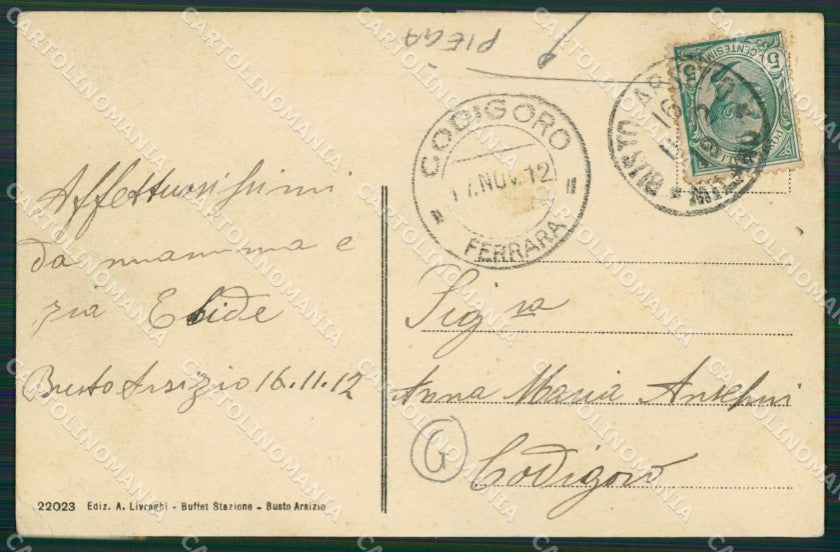 PIEGA
CODIGORO
17. NOV. 12
FERRARA
BUSTO ARSIZIO
16
CENTESIMI
5 5
Affettuosissimi
da mamma e
zia Elside
Busto Arsizio 16.11.12
Sig.ra
Anna Maria
Codigoro
G
22023 Ediz. A. Livraghi - Buffet Stazione - Busto Arsizio
CARTOLINOMANIA